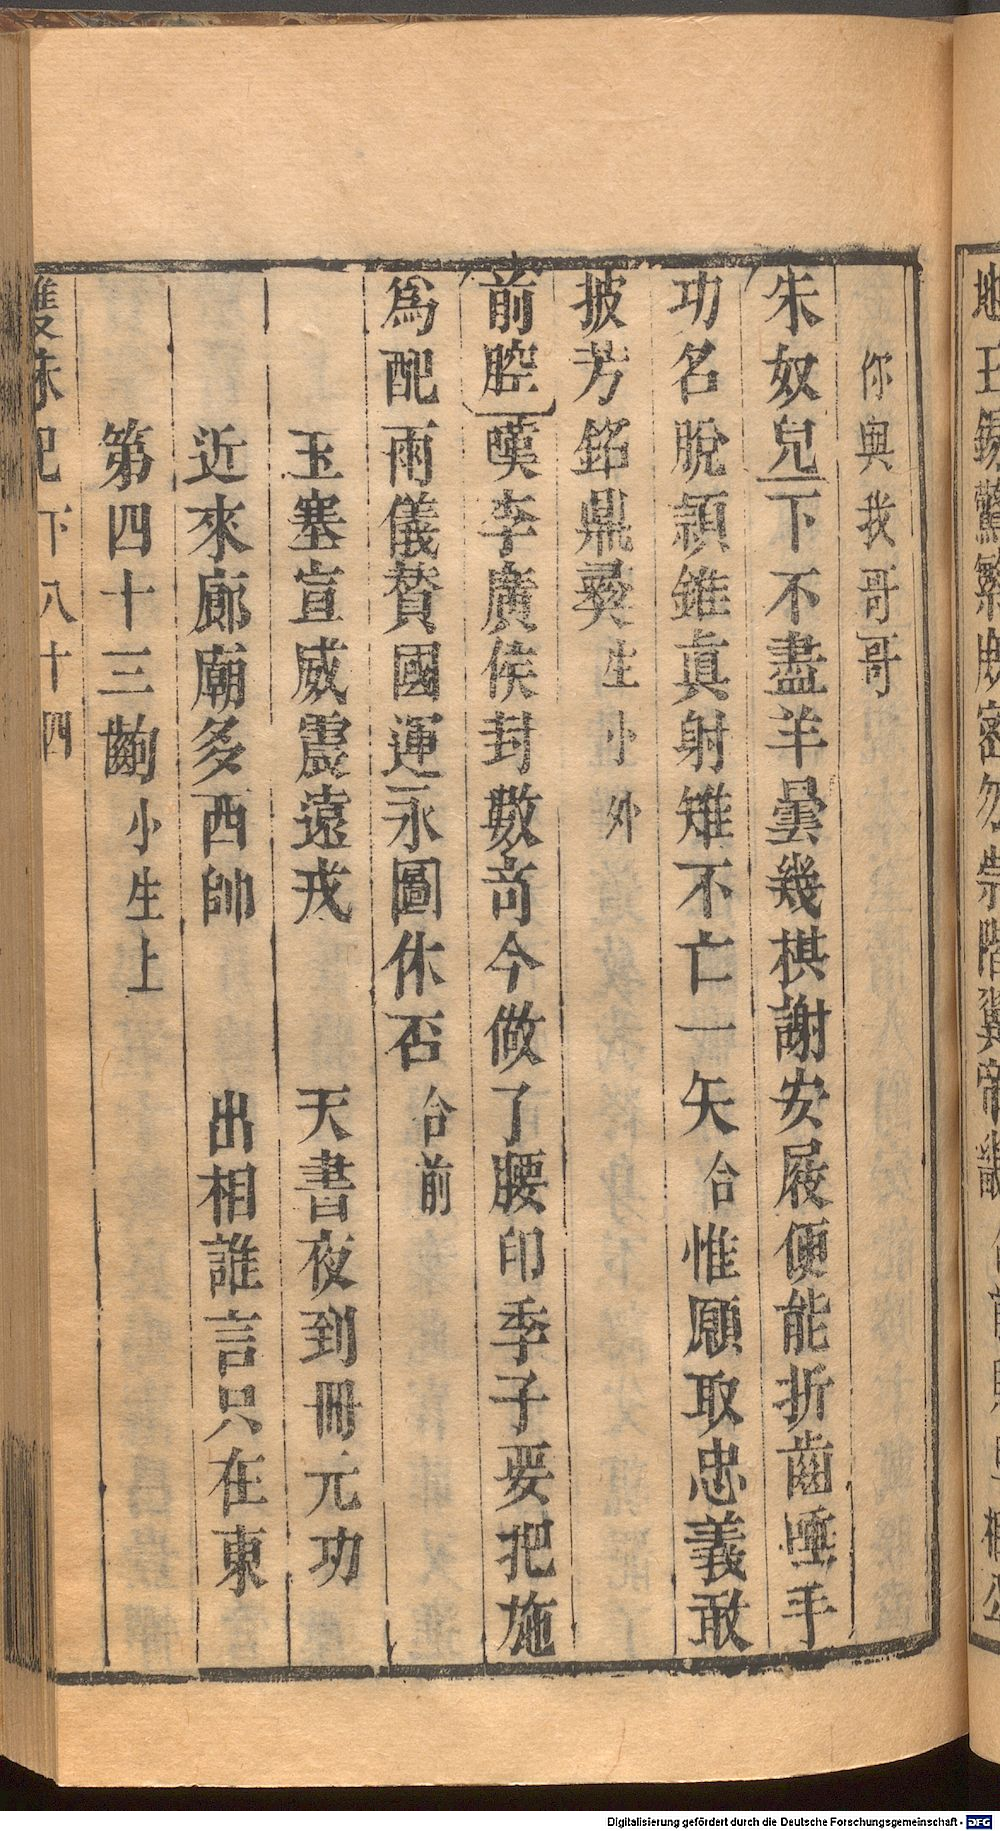 你與我哥哥
朱奴兒下不盡羊曇幾棋謝安屐便能折齒唾手
功名脫穎錐真射雉不亡一矢合惟願取忠義敢
披芳銘鼎彞生小外
前腔嘆李廣侯封數奇今做了腰印季子要把施
為配兩儀贊國運永圖休否合前
玉塞宣威震遠戎 天書夜到冊元功
近來廊廟多西帥 出相誰言只在東
第四十三齣小生上
雙珠記 下 八十四
Digitalisierung gefördert durch die Deutsche Forschungsgemeinschaft - DFG